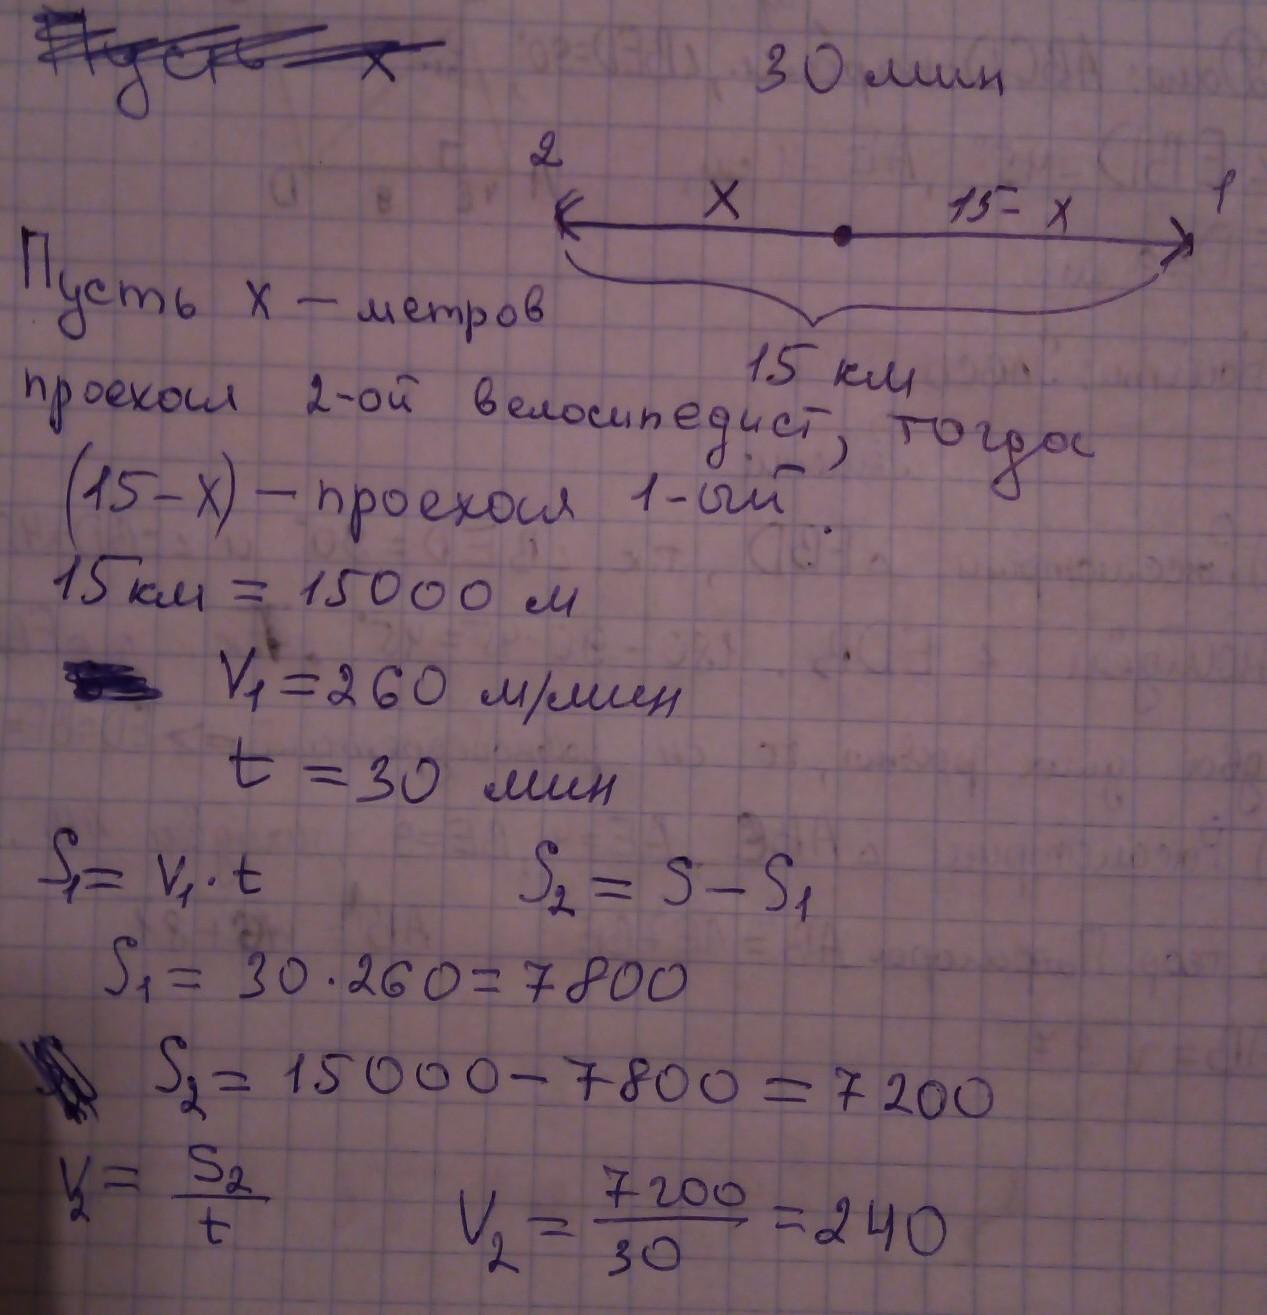 Пусть x
30 мин
2
x
15 - x
1
15 км
Пусть x – метров
проехал 2-ой велосипедист, тогда
(15 – x) – проехал 1-ый.
15 км = 15000 м
V₁ = 260 м/мин
t = 30 мин
S₁ = V₁ · t S₂ = S – S₁
S₁ = 30 · 260 = 7800
S₂ = 15000 – 7800 = 7200
V₂ = S₂/t V₂ = 7200/30 = 240